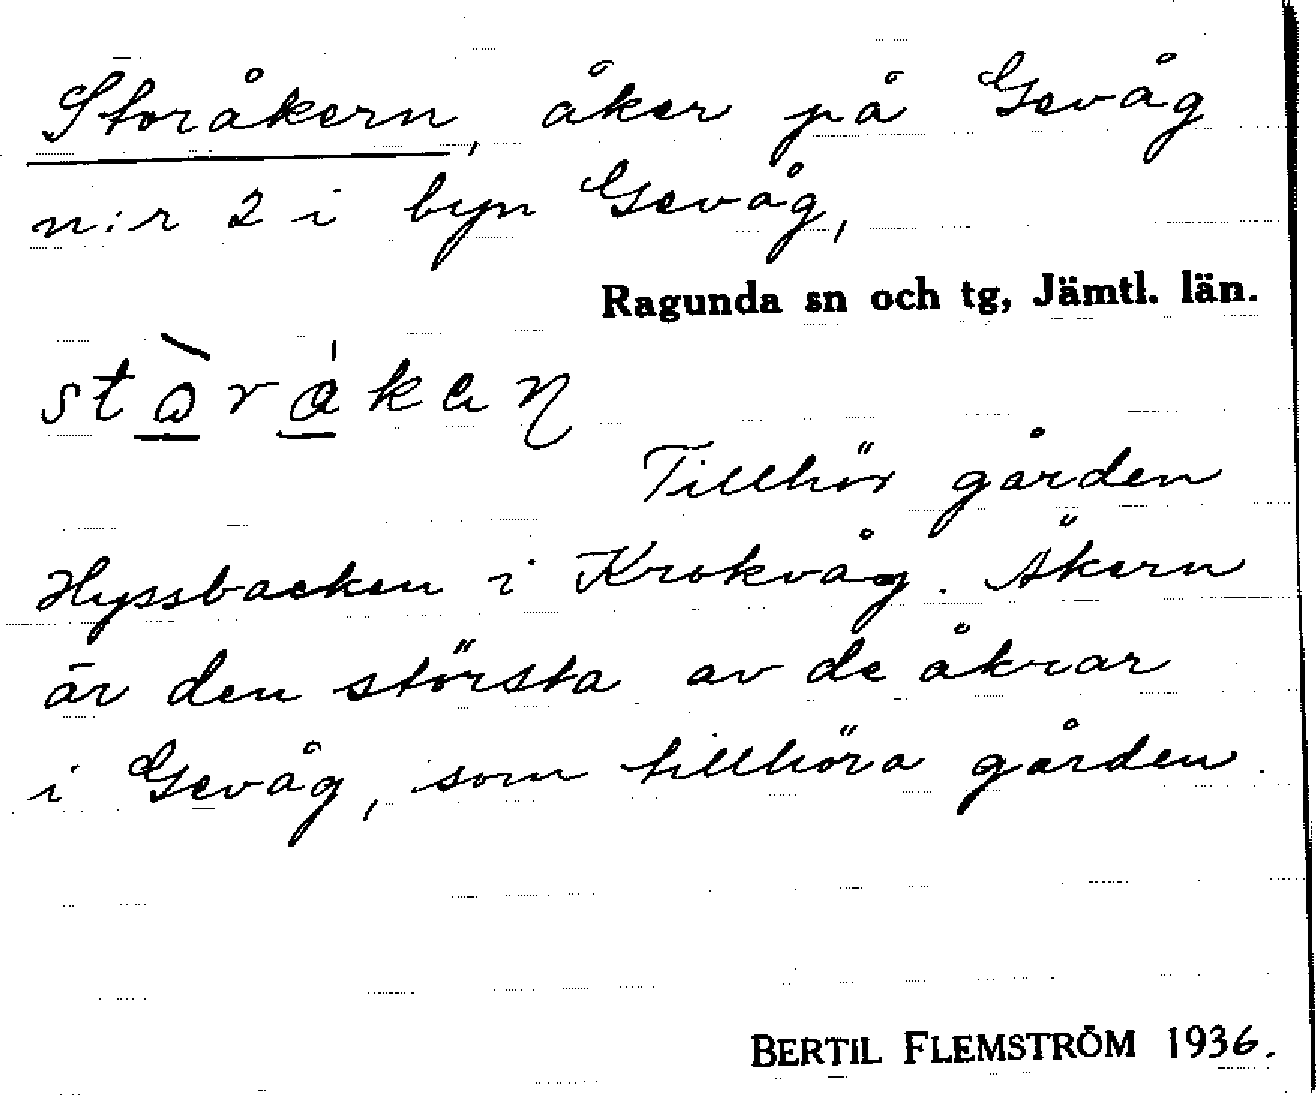 Storåkern, åker på Gevåg
n:r 2 i byn Gevåg,
Ragunda sn och tg, Jämtl. län.
Tillhör gården
Hyssbacken i Krokvåg. Åkern
är den största av de åkrar
i Gevåg, som tillhöra gården.
BERTIL FLEMSTRÖM 1936.